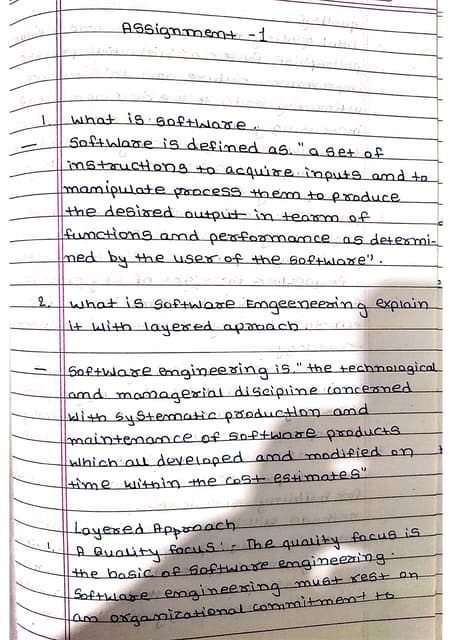 Assignment -1
1. What is software.
— Software is defined as. "a set of
instructions to acquire inputs and to
manipulate process them to produce
the desired output in tearm of
functions and performance as determi-
ned by the user of the software".
2. What is software Engeeneering explain
it with layered aproach.
— Software engineering is." the technological
and managerial discipline concerned
with systematic production and
maintenance of software products
which all developed and modified on
time within the cost estimates"
Layered Approach
1. A Quality focus:- The quality focus is
the basic of software engineering.
Software engineering must rest on
an organizational commitment to